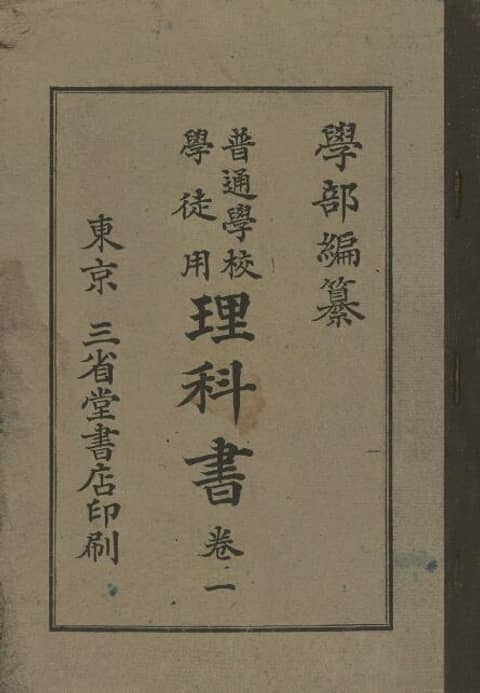 學部編纂
普通學校
學徒用
理科書 卷一
東京 三省堂書店印刷